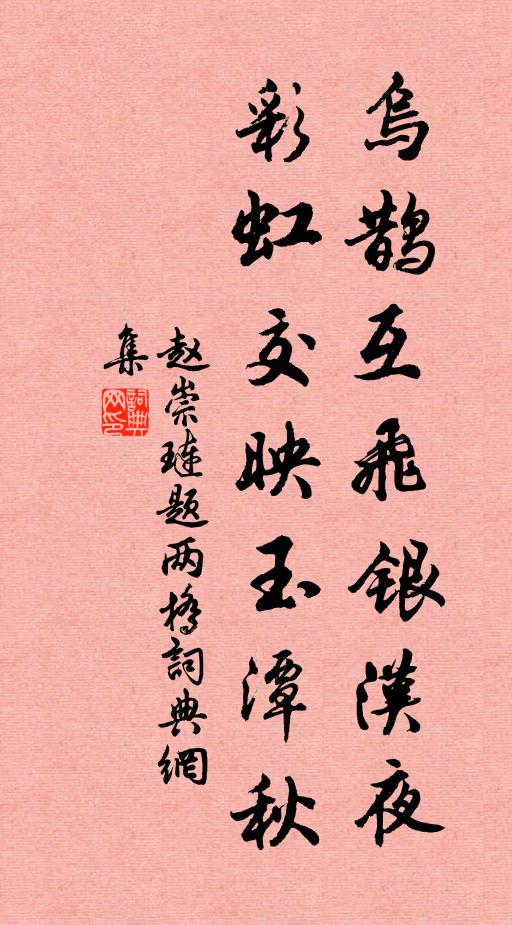 乌鹊互飞银汉夜
彩虹交映玉潭秋
赵崇琏题两桥詞典網
集
詞典
网印